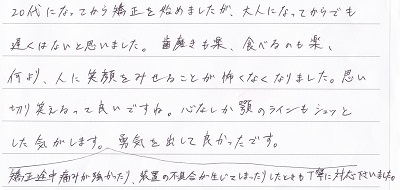 20代になってから矯正を始めましたが、大人になってからでも
遅くはないと思いました。歯磨きも楽、食べるのも楽、
何より、人に笑顔をみせることが怖くなくなりました。思い
切り笑えるって良いですね。心なしか顎のラインもシュッと
した気がします。勇気を出して良かったです。
矯正途中痛みが強かったり、装置の不具合が生じてしまったりしたときも丁寧に対応下さいました。